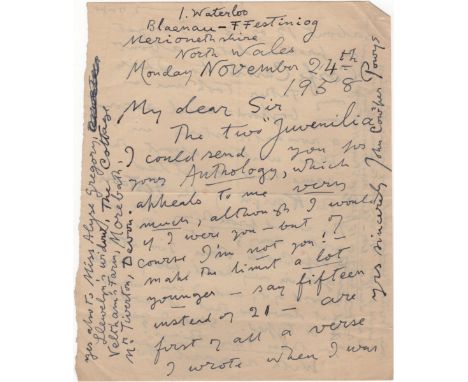 1. Waterloo
Blaenau-Ffestiniog
Merionethshire
North Wales
Monday November 24th
1958
My dear Sir
The two "Juvenilia"
I could send you for
your Anthology, which
appeals to me very
much, although I would
if I were you — but of
course I'm not you! —
make the limit a lot
younger — say fifteen
instead of 21 — are
first of all a verse
I wrote when I was
yes also to Miss Alyse Gregory,
Llewelyn's widow, The Cottage
Velthams Farm Morebath,
Nr Tiverton, Devon.
yrs sincerely John Cowper Powys